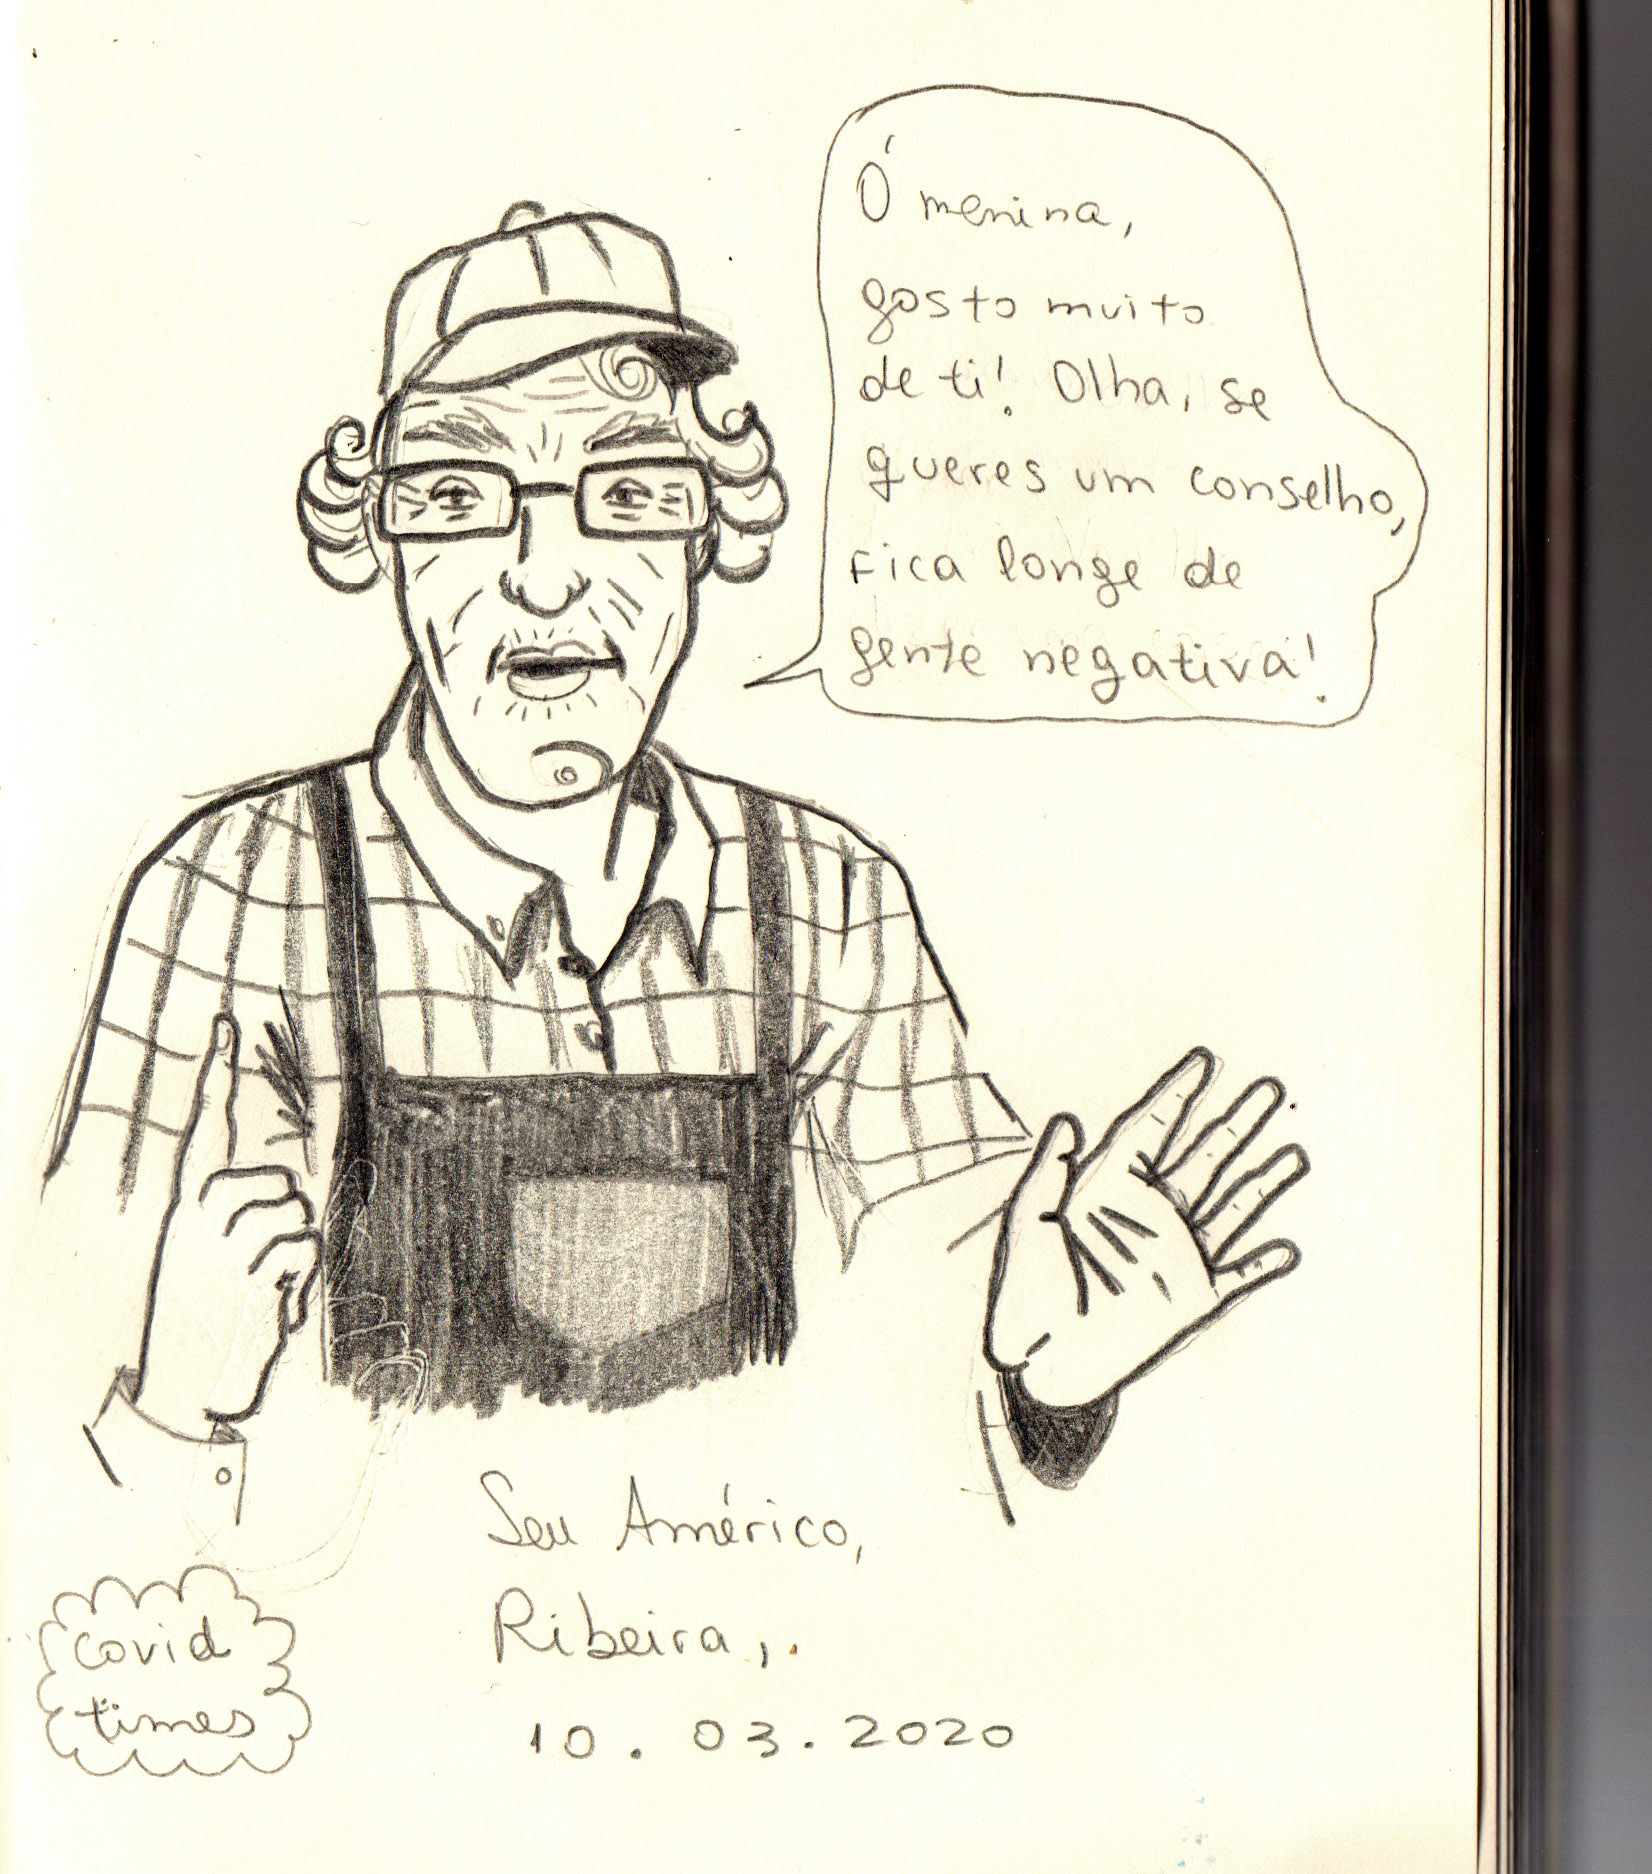 Ó menina,
gosto muito
de ti! Olha, se
queres um conselho,
fica longe de
gente negativa!
Seu Américo,
Ribeira,.
10.03.2020
covid
times